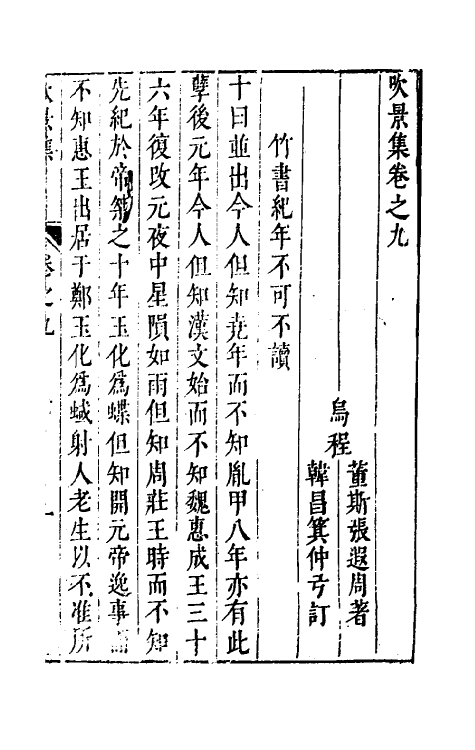 吹景集卷之九
烏程
董斯張遐周著
韓昌箕仲弓訂
竹書紀年不可不讀
十日並出今人但知堯年而不知胤甲八年亦有此
孽後元年今人但知漢文始而不知魏惠成王三十
六年復改元夜中星隕如雨但知周莊王時而不知
先紀於帝癸之十年玉化為蝶但知開元帝逸事而
不知惠王出居于鄭玉化爲蜮射人老生以不准所
吹景集
卷之九
一